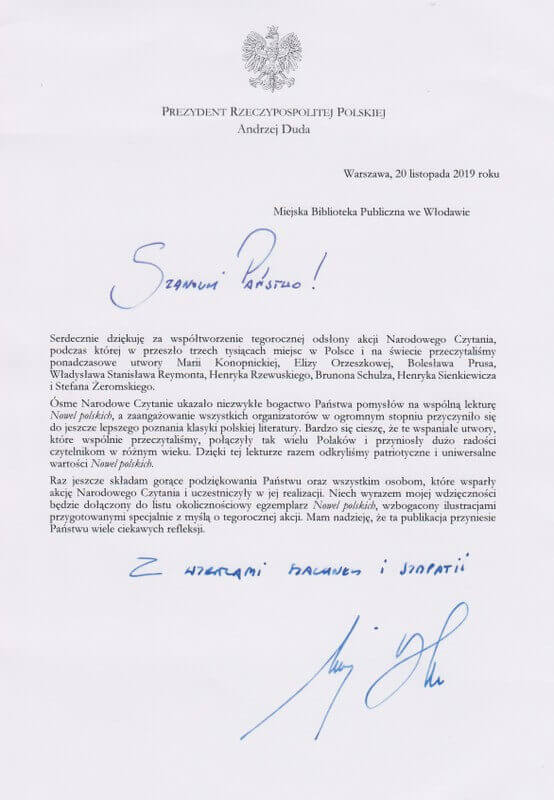 PREZYDENT RZECZYPOSPOLITEJ POLSKIEJ
Andrzej Duda
Warszawa, 20 listopada 2019 roku
Miejska Biblioteka Publiczna we Włodawie
Szanowni Państwo!
Serdecznie dziękuję za współtworzenie tegorocznej odsłony akcji Narodowego Czytania,
podczas której w przeszło trzech tysiącach miejsc w Polsce i na świecie przeczytaliśmy
ponadczasowe utwory Marii Konopnickiej, Elizy Orzeszkowej, Bolesława Prusa,
Władysława Stanisława Reymonta, Henryka Rzewuskiego, Brunona Schulza, Henryka Sienkiewicza
i Stefana Żeromskiego.
Ósme Narodowe Czytanie ukazało niezwykłe bogactwo Państwa pomysłów na wspólną lekturę
Nowel polskich, a zaangażowanie wszystkich organizatorów w ogromnym stopniu przyczyniło się
do jeszcze lepszego poznania klasyki polskiej literatury. Bardzo się cieszę, że te wspaniałe utwory,
które wspólnie przeczytaliśmy, połączyły tak wielu Polaków i przyniosły dużo radości
czytelnikom w różnym wieku. Dzięki tej lekturze razem odkryliśmy patriotyczne i uniwersalne
wartości Nowel polskich.
Raz jeszcze składam gorące podziękowania Państwu oraz wszystkim osobom, które wsparły
akcję Narodowego Czytania i uczestniczyły w jej realizacji. Niech wyrazem mojej wdzięczności
będzie dołączony do listu okolicznościowy egzemplarz Nowel polskich, wzbogacony ilustracjami
przygotowanymi specjalnie z myślą o tegorocznej akcji. Mam nadzieję, że ta publikacja przyniesie
Państwu wiele ciekawych refleksji.
Z wyrazami szacunku i sympatii